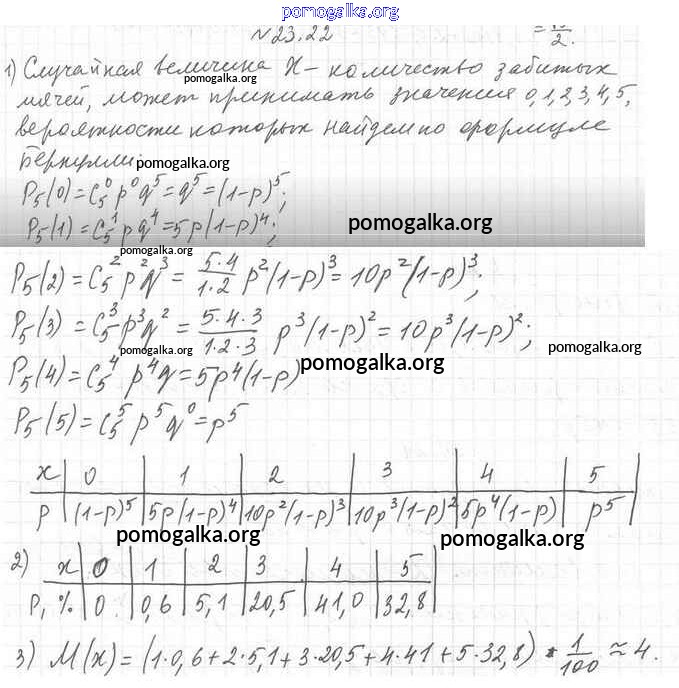 pomogalka.org
№23.22
= 10/2.
1) Случайная величина X – количество забитых
pomogalka.org
мячей, может принимать значения 0,1,2,3,4,5,
вероятности которых найдем по формуле
Бернулли
pomogalka.org
P₅(0)=C₅⁰p⁰q⁵=q⁵=(1-p)⁵;
P₅(1)=C₅¹pq⁴=5p(1-p)⁴;
pomogalka.org
pomogalka.org
P₅(2)=C₅²p²q³= 5·4/1·2 p²(1-p)³=10p²(1-p)³;
P₅(3)=C₅³p³q²= 5·4·3/1·2·3 p³(1-p)²=10p³(1-p)²;
pomogalka.org
pomogalka.org
P₅(4)=C₅⁴p⁴q=5p⁴(1-p)
pomogalka.org
P₅(5)=C₅⁵p⁵q⁰=p⁵
x | 0 | 1 | 2 | 3 | 4 | 5
p | (1-p)⁵ | 5p(1-p)⁴ | 10p²(1-p)³ | 10p³(1-p)² | 5p⁴(1-p) | p⁵
pomogalka.org
pomogalka.org
2) x | 0 | 1 | 2 | 3 | 4 | 5
P, % | 0 | 0,6 | 5,1 | 20,5 | 41,0 | 32,8
3) M(x)=(1·0,6+2·5,1+3·20,5+4·41+5·32,8)·1/100≈4.